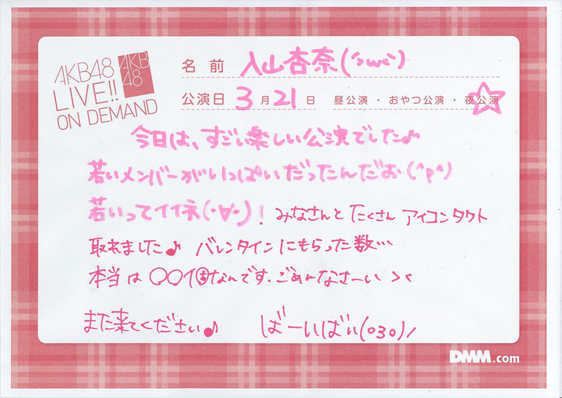 AKB48
LIVE!!
ON DEMAND
AKB
48
名前 入山杏奈(^ω^)
公演日 3月21日 昼公演・おやつ公演・夜公演
今日は、すごい楽しい公演でした♪
若いメンバーがいっぱいだったんだお(^p^)
若いってイイネ(・∀・)! みなさんとたくさんアイコンタクト
取れました♪ バレンタインにもらった数…
本当は〇〇個なんです。ごめーなさーい ><
また来てください♪ ばーいばい(o3o)/
DMM.com